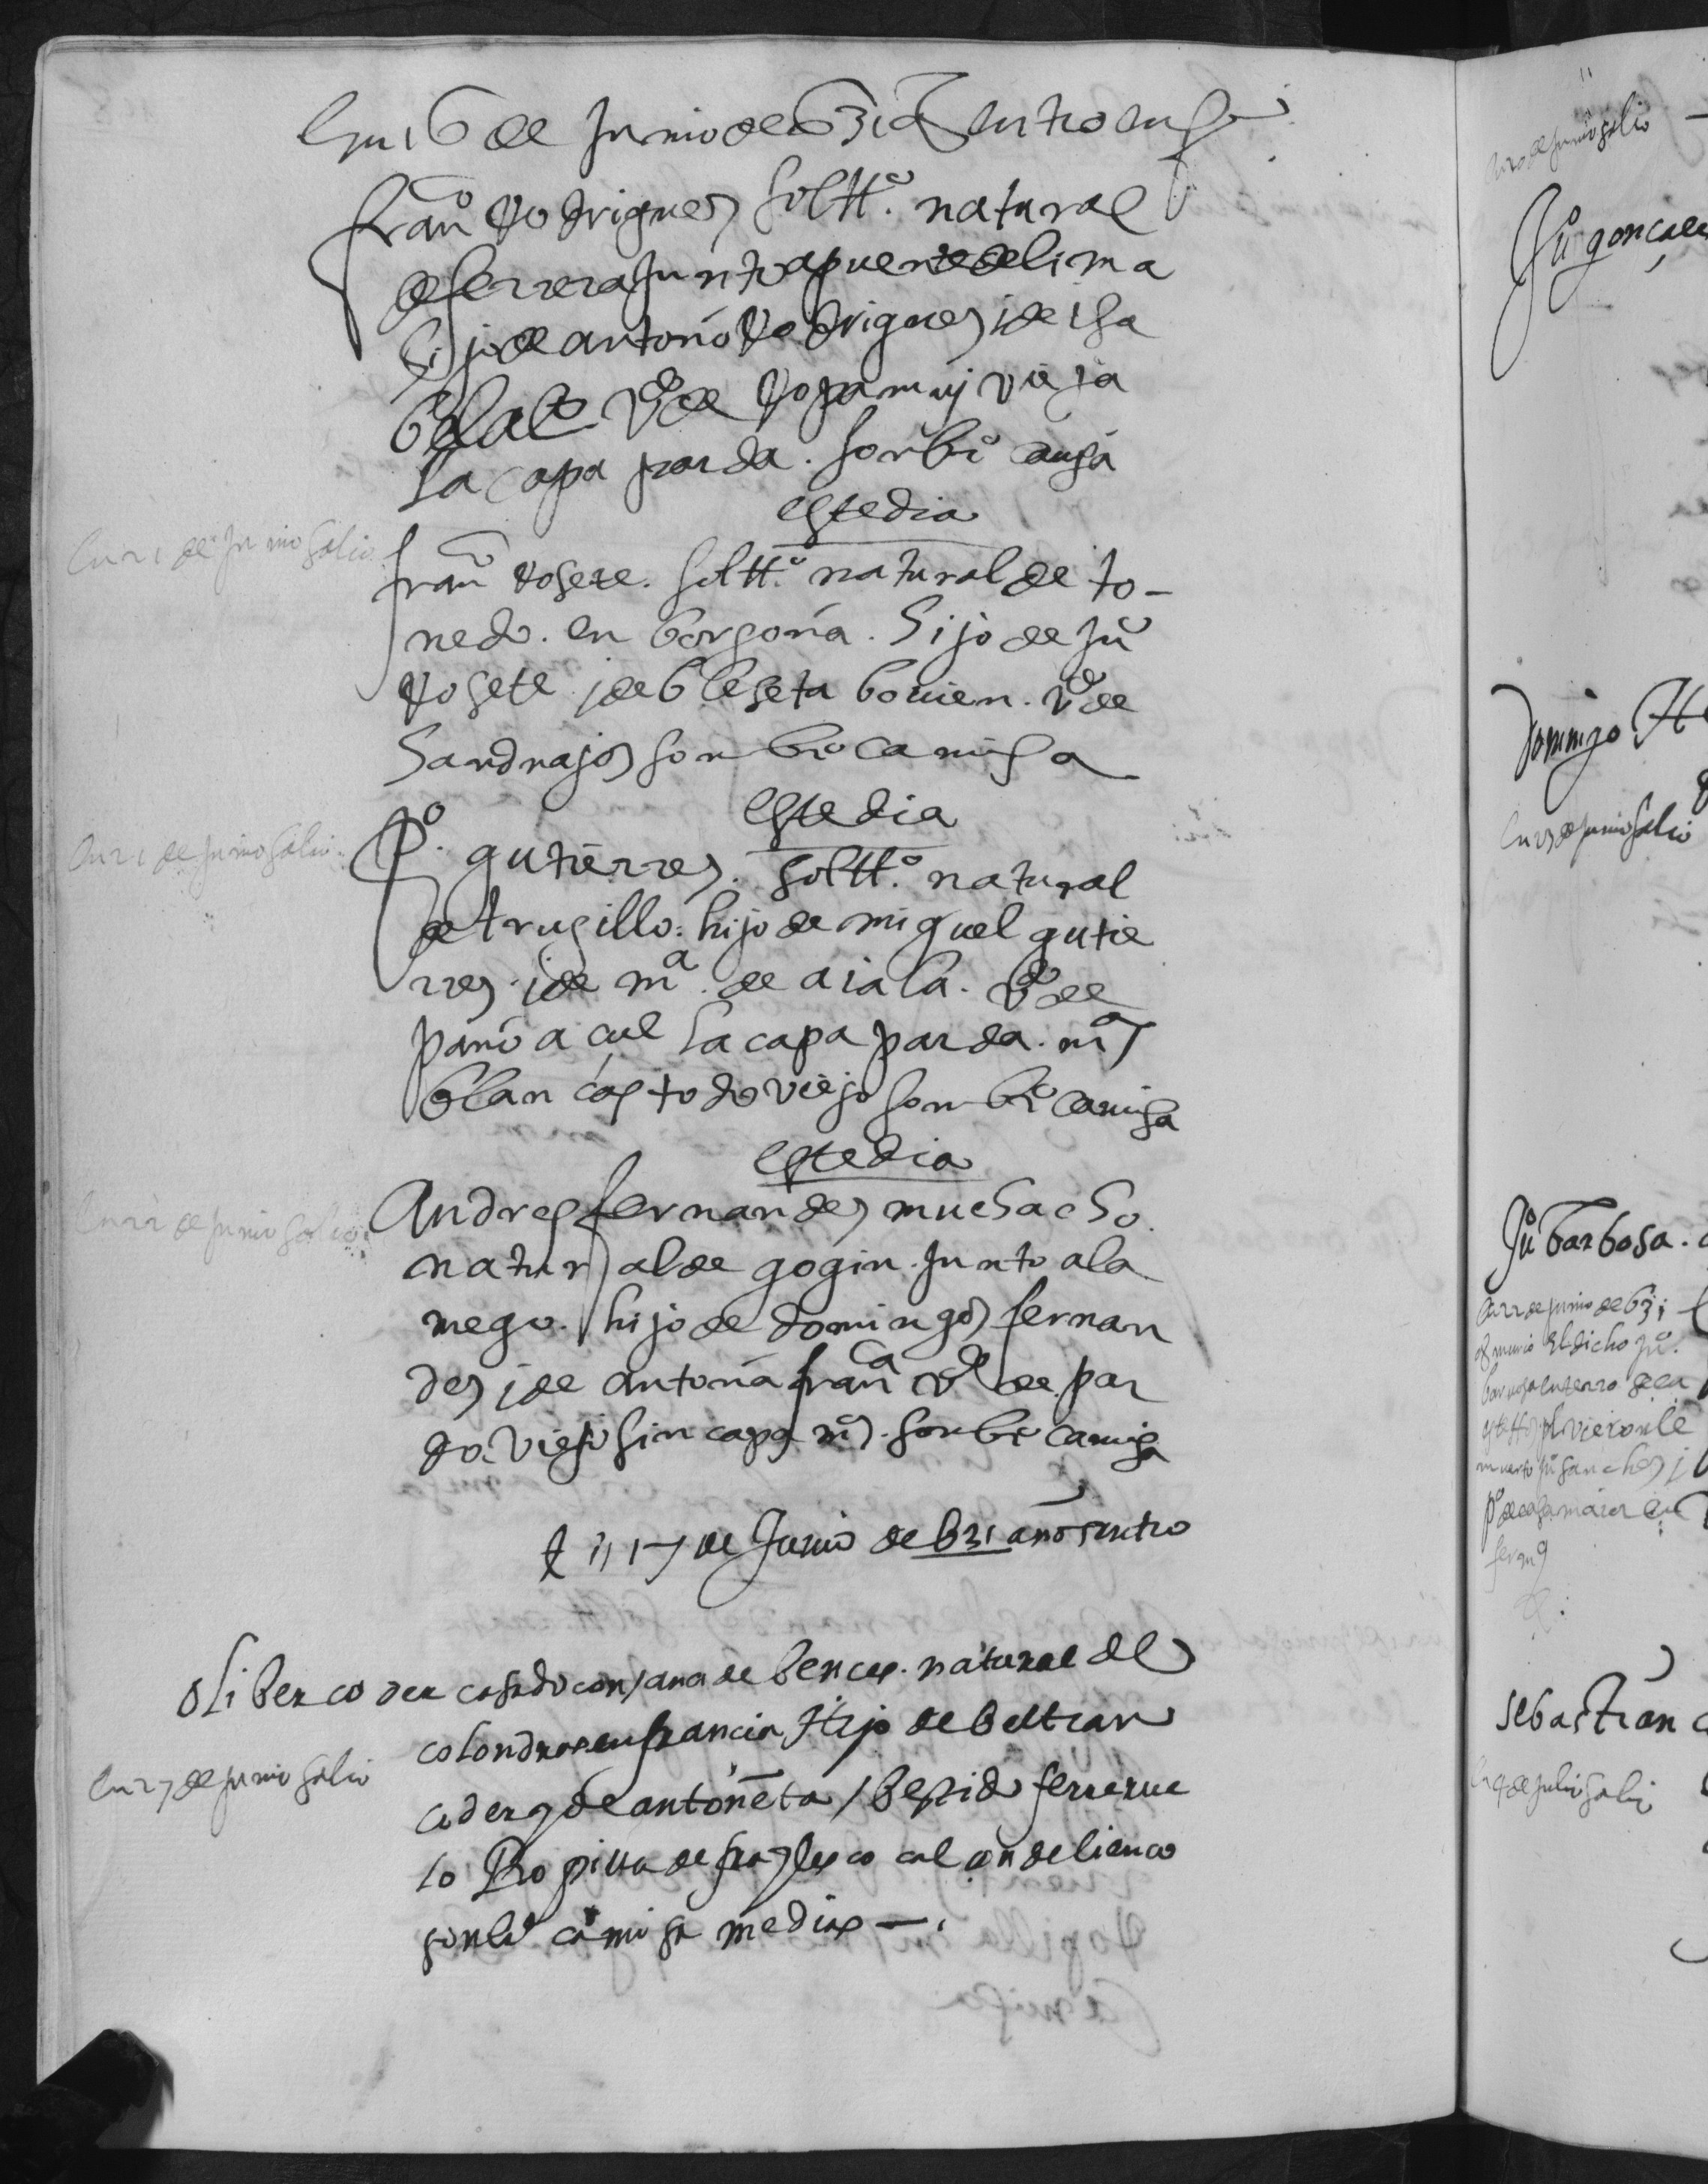 En 16 de junio de 631 entro en
franco Rodrigues soltto. natural
de ferrera junto a puente de lima
hijo de antonio Rodrigues i de isa
bel al vdo de Ropa mui vieja
la capa parda. sonbro camisa
este dia
En 21 de junio salio
franco Rosete. soltto. natural de to-
nedo. en borgoña. hijo de juo
Rosete i de bleseta bouien. vdo de
handrajos sonbro camisa
este dia
En 21 de junio salio.
Po. gutierres. soltto. natural
de trugillo. hijo de miguel gutie
rres. i de ma. de aiala. vdo de
paño açul la capa parda. ms
blancas todo viejo sonbro camisa
este dia
En 22 de junio salio
Andres fernandes muchacho.
natural de gogin. junto a la
mego. hijo de domingos fernan
des i de antonia franca vdo de par
do. viejo sin capa ms. sonbro camisa
En 17 de Junio de 631 años entro
oliber co der casado con jana de bences. natural de
colondres en francia Hijo de beltran
En 27 de junio salio
coder y de antoneta / bestido ferrerue
lo Ropilla de fraylesco calçon de lienco
sonbro camisa medias —.
En 20 de junio salio
Juo gonçales
Domingo
En 23 de junio salio
Juo barbosa.
En 22 de junio de 631
murio el dicho juo.
barbosa enterro se en
vieronle
muerto juo sanches i
po de casamaior en
fermo
sebastian
En 4 de julio salio